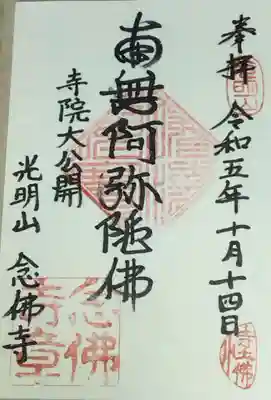 奉拝 令和五年十月十四日
南無阿弥陀佛
寺院大公開
光明山 念佛寺
念佛寺章